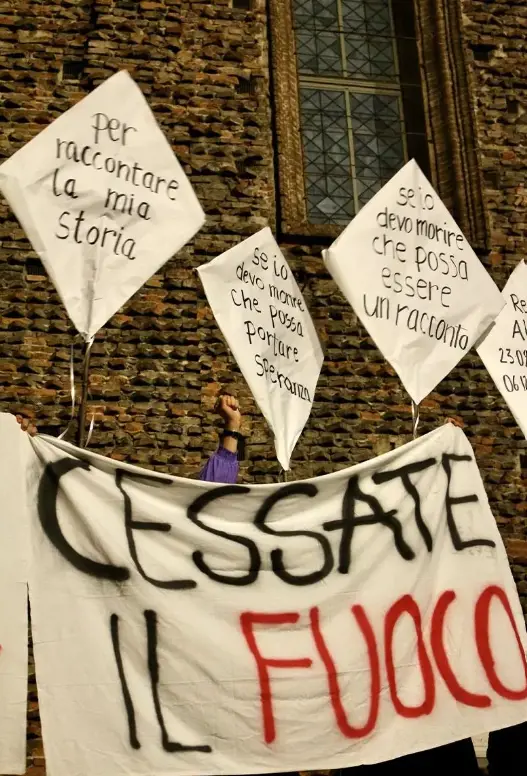 per
raccontare
la mia
storia
se io
devo morire
che possa
portare
speranza
se io
devo morire
che possa
essere
un racconto
CESSATE
IL FUOCO